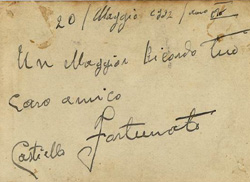 20 / Maggio 1932 / anno
Un Maggior Ricordo Tuo
caro amico
Castiello Fortunato